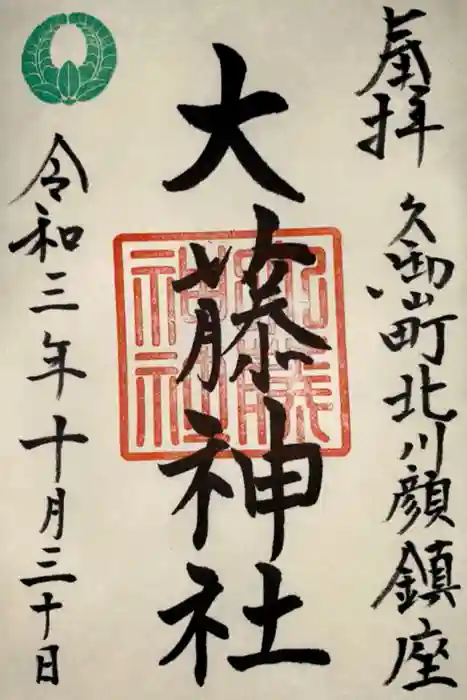 奉拝
久御山町北川顔鎮座
大藤神社
令和三年十月三十日